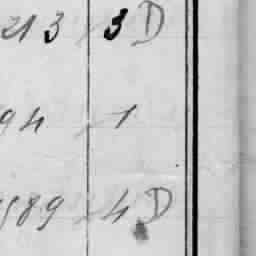 213 3 D
94 1
989 4 D